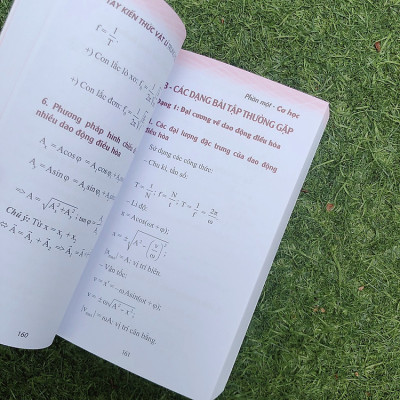 TAY KIẾN THỨC VẬT LÍ
f = 1/T.
+) Con lắc lò xo: f =
+) Con lắc đơn: f =
6. Phương pháp hình chiếu
nhiều dao động điều hòa
Aₓ = Acosφ = A₁cosφ₁ +
Aᵧ = Asinφ = A₁sinφ₁ +
⇒ A = √(Aₓ² + Aᵧ²); tanφ =
Chú ý: Từ x = x₁ + x₂
⇒ A = A₁ + A₂ ⇔ A₁ =
160
Phần một - Cơ học
3 - CÁC DẠNG BÀI TẬP THƯỜNG GẶP
Dạng 1: Đại cương về dao động điều hòa
1. Các đại lượng đặc trưng của dao động
điều hòa
Sử dụng các công thức:
- Chu kì, tần số:
T = t/N; f = N/t; T = 1/f = 2π/ω.
- Li độ:
x = Acos(ωt + φ);
x = ±√(A² − (v/ω)²);
|xₘₐₓ| = A: vị trí biên.
- Vận tốc:
v = x' = −ωAsin(ωt + φ);
v = ±ω√(A² − x²;
|vₘₐₓ| = ωA: vị trí cân bằng.
161